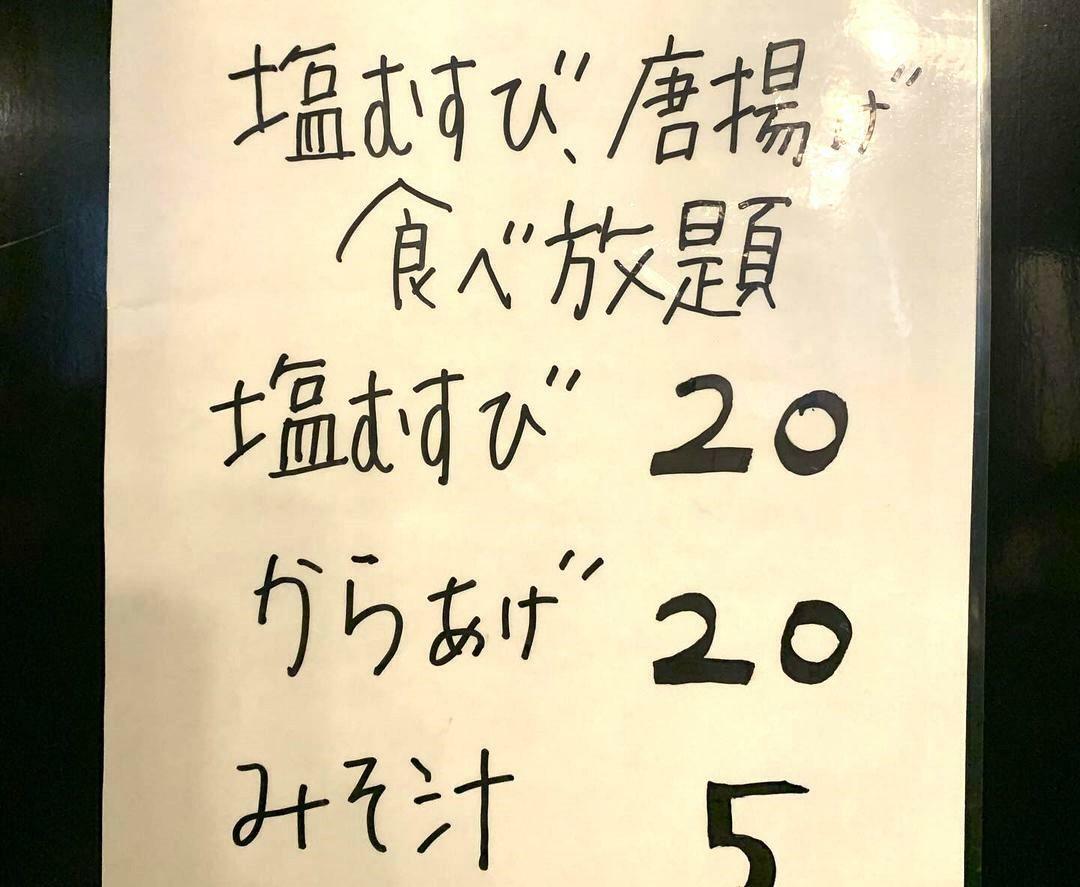 塩むすび、唐揚げ
食べ放題
塩むすび 20
からあげ 20
みそ汁 5